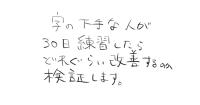 字の下手な人が
30日練習したら
どれぐらい改善するのか
検証します。